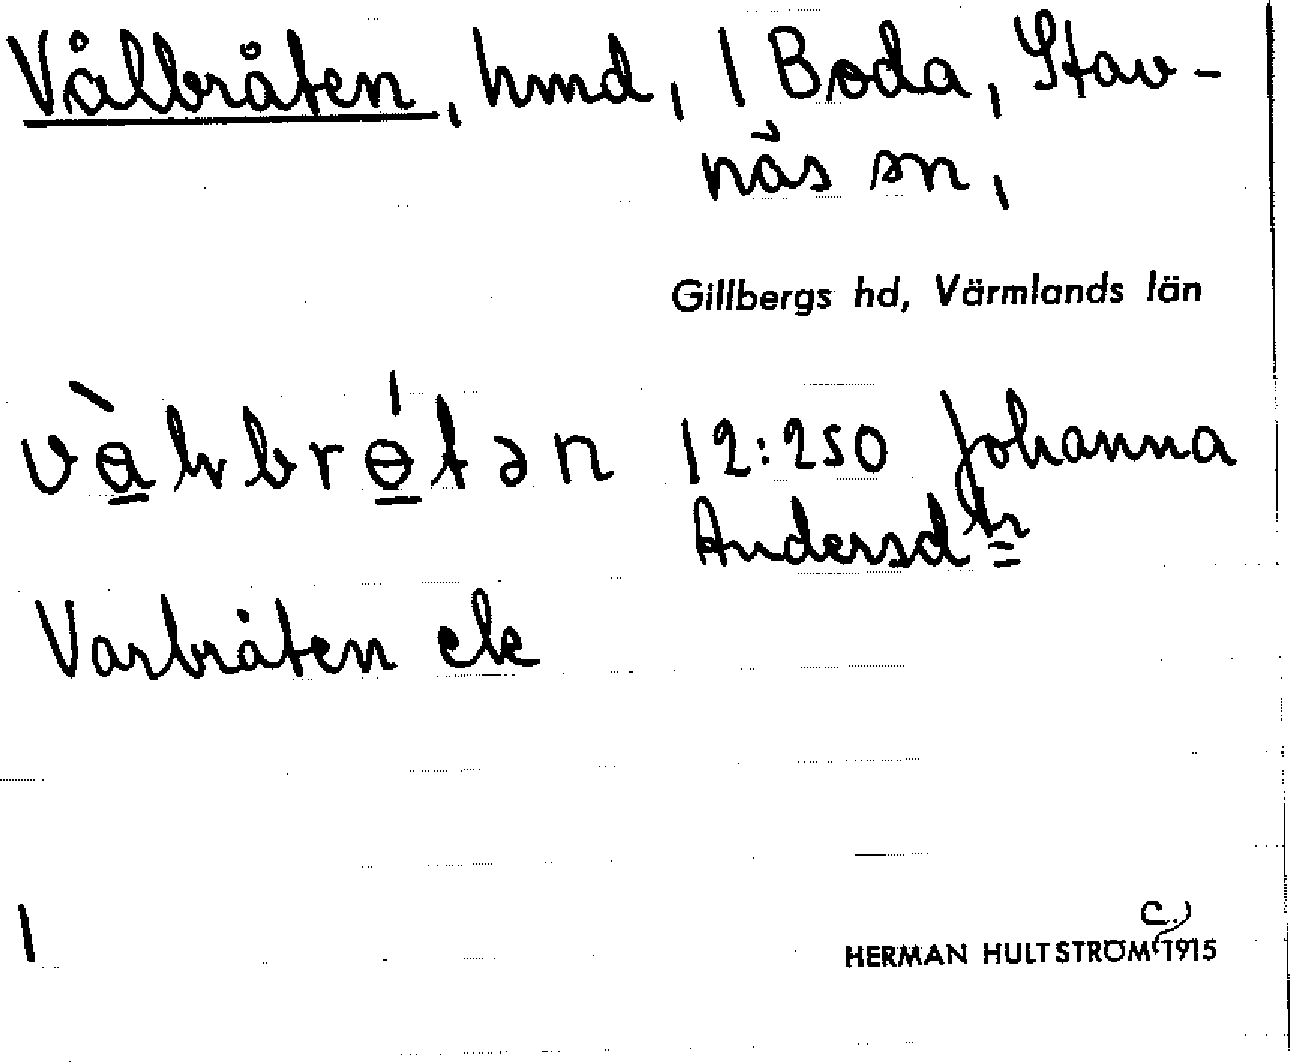 Vålbråten, hmd, 1 Boda, Stav-
näs sn,
Gillbergs hd, Värmlands län
12:250 Johanna
Andersdtr
Varbråten ek
1
C.
HERMAN HULTSTRÖM 1915